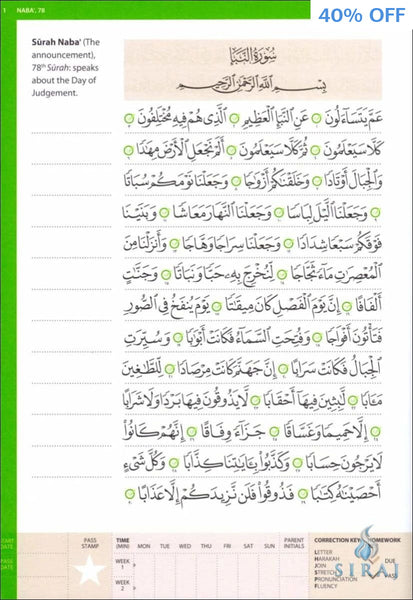 1 NABA', 78
40% OFF
Sūrah Naba' (The
announcement),
78th Sūrah: speaks
about the Day of
Judgement.
سُورَةُ النَّبَإِ
بِسْمِ اللَّهِ الرَّحْمَٰنِ الرَّحِيمِ
عَمَّ يَتَسَاءَلُونَ عَنِ النَّبَإِ الْعَظِيمِ الَّذِي هُمْ فِيهِ مُخْتَلِفُونَ
كَلَّا سَيَعْلَمُونَ ثُمَّ كَلَّا سَيَعْلَمُونَ أَلَمْ نَجْعَلِ الْأَرْضَ مِهَٰدًا
وَالْجِبَالَ أَوْتَادًا وَخَلَقْنَٰكُمْ أَزْوَٰجًا وَجَعَلْنَا نَوْمَكُمْ سُبَاتًا
وَجَعَلْنَا الَّيْلَ لِبَاسًا وَجَعَلْنَا النَّهَارَ مَعَاشًا وَبَنَيْنَا
فَوْقَكُمْ سَبْعًا شِدَادًا وَجَعَلْنَا سِرَاجًا وَهَّاجًا وَأَنزَلْنَا مِنَ
الْمُعْصِرَٰتِ مَاءً ثَجَّاجًا لِّنُخْرِجَ بِهِ حَبًّا وَنَبَاتًا وَجَنَّٰتٍ
أَلْفَافًا إِنَّ يَوْمَ الْفَصْلِ كَانَ مِيقَٰتًا يَوْمَ يُنفَخُ فِي الصُّورِ
فَتَأْتُونَ أَفْوَاجًا وَفُتِحَتِ السَّمَاءُ فَكَانَتْ أَبْوَٰبًا وَسُيِّرَتِ
الْجِبَالُ فَكَانَتْ سَرَابًا إِنَّ جَهَنَّمَ كَانَتْ مِرْصَادًا لِّلطَّٰغِينَ
مَـَٔابًا لَّٰبِثِينَ فِيهَا أَحْقَابًا لَّا يَذُوقُونَ فِيهَا بَرْدًا وَلَا شَرَابًا
إِلَّا حَمِيمًا وَغَسَّاقًا جَزَاءً وِفَاقًا إِنَّهُمْ كَانُوا
لَا يَرْجُونَ حِسَابًا وَكَذَّبُوا بِـَٔايَٰتِنَا كِذَّابًا وَكُلَّ شَيْءٍ
أَحْصَيْنَٰهُ كِتَٰبًا فَذُوقُوا فَلَن نَّزِيدَكُمْ إِلَّا عَذَابًا
START DATE
PASS DATE
PASS STAMP
TIME (MIN) MON TUE WED THU FRI SAT SUN PARENT INITIALS
WEEK 1
WEEK 2
CORRECTION KEY HOMEWORK
LETTER
HARAKAH
JOIN
STRETCH
PRONUNCIATION
FLUENCY
DUE
PASS
SIRAJ